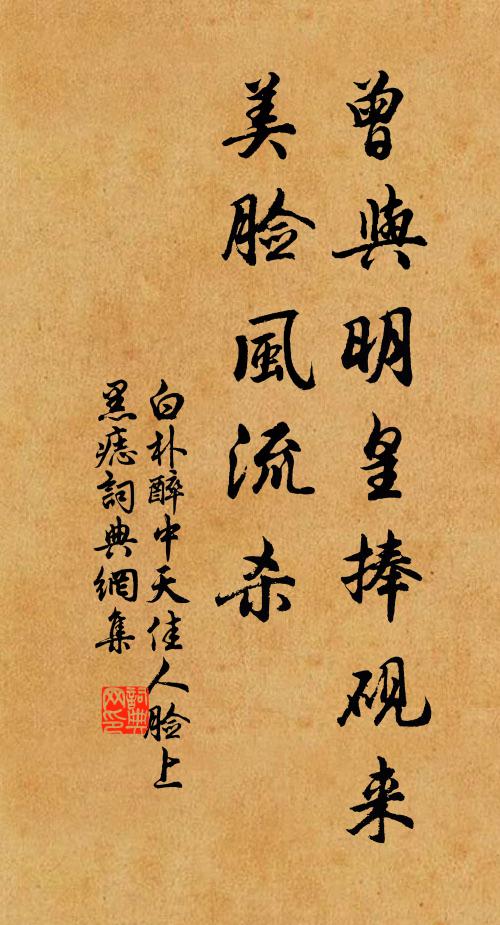 曾與明皇捧硯来
美脸風流杀
白朴醉中天佳人脸上
黑痣詞典網集
詞典
网印